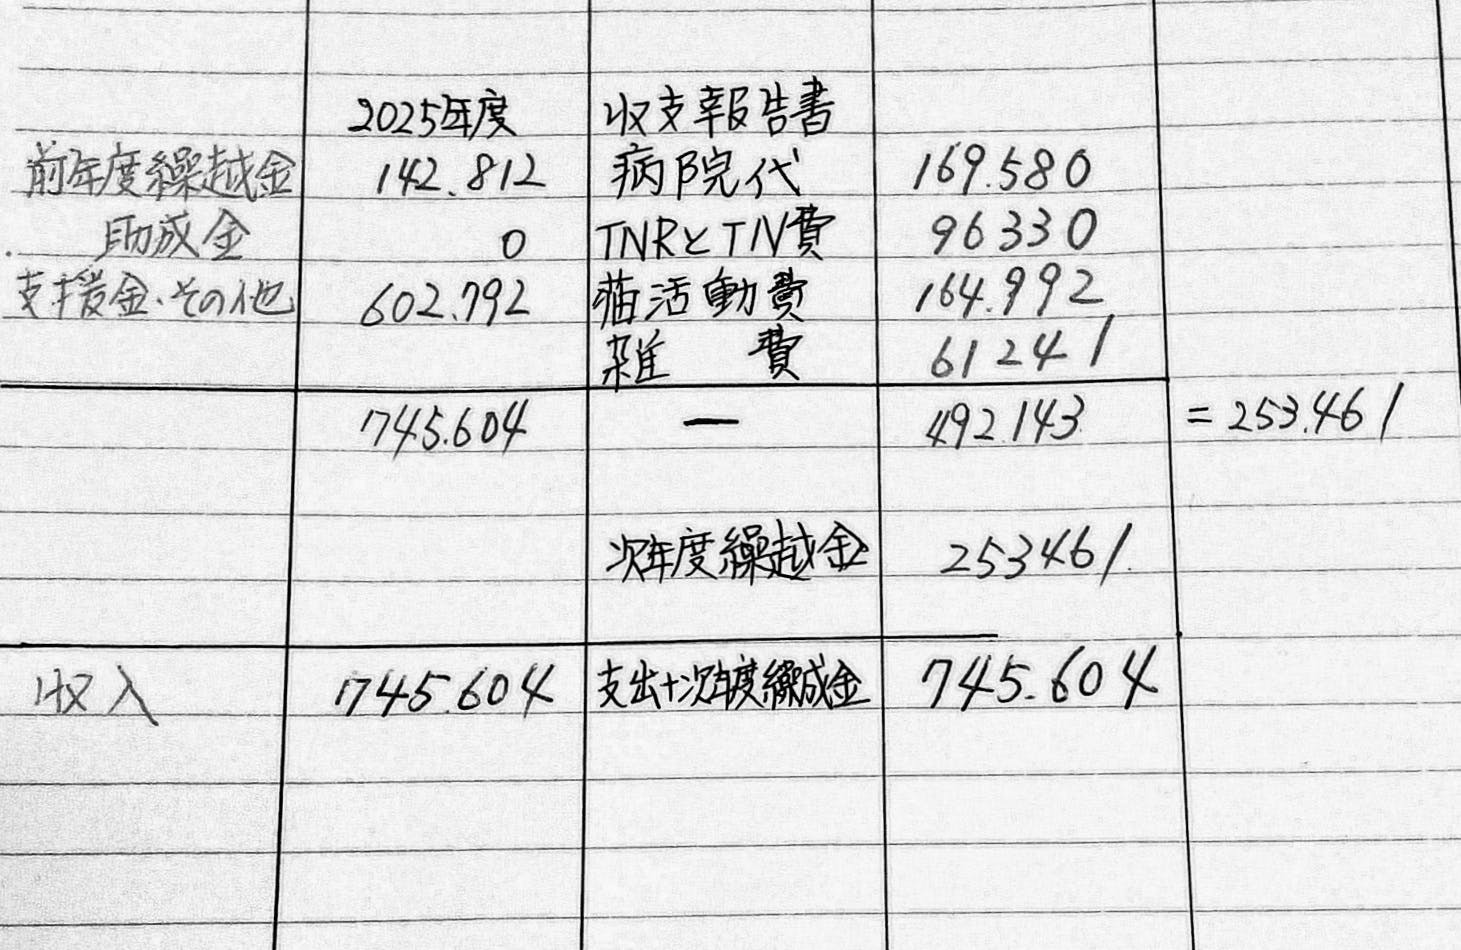 2025年度 収支報告書
前年度繰越金 142.812 病院代 169.580
助成金 0 TNRとTNV費 96330
支援金、その他 602.792 猫活動費 164.992
雑 費 61241
745.604 ー 492143 =253.461
次年度繰越金 253461
収入 745.604 支出+次年度繰成金 745.604